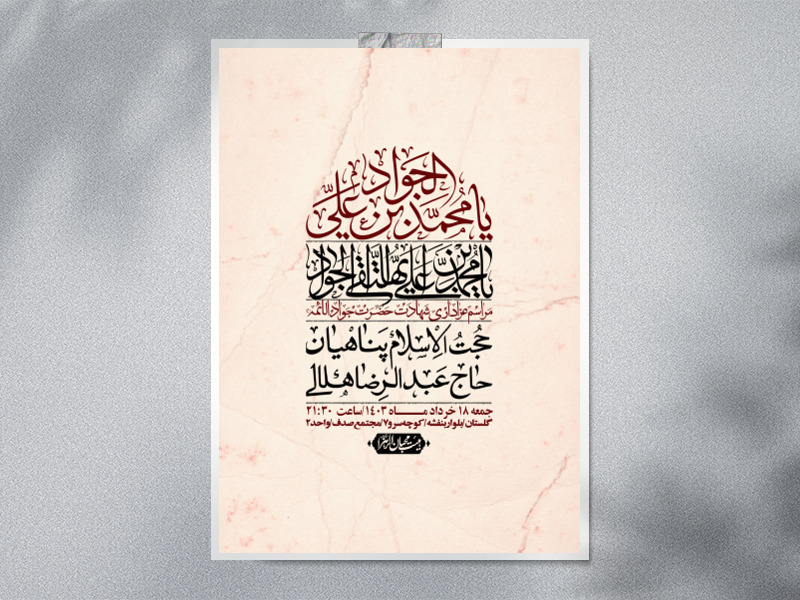 یا محمد بن علی الجواد
یا محمد بن علی ایها التقی الجواد
مراسم عزاداری شهادت حضرت جوادالائمه
حجت الاسلام پناهیان
حاج عبدالرضا هلالی
جمعه ۱۸ خرداد مـــاه ۱۴۰۳/ساعت ۲۱:۳۰
گلستان/بلواربنفشه/کوچه‌سرو۷/مجتمع‌صدف/واحد۲
هیئت محبان الزهرا